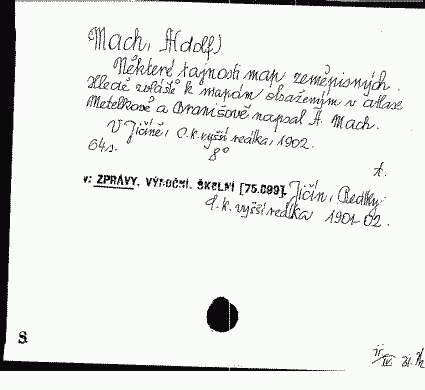 Mach, A(dolf)
Některé tajnosti map zeměpisných.
Hledě zvláště k mapám obsaženým v atlase
Metelkově a Branišově napsal A. Mach.
V Jičíně, C. k. vyšší reálka, 1902.
64 s. 8°
A.
v: ZPRÁVY, VÝROČNÍ, ŠKOLNÍ [75.099]. Jičín, Reálky:
C. k. vyšší reálka 1901-02.
S